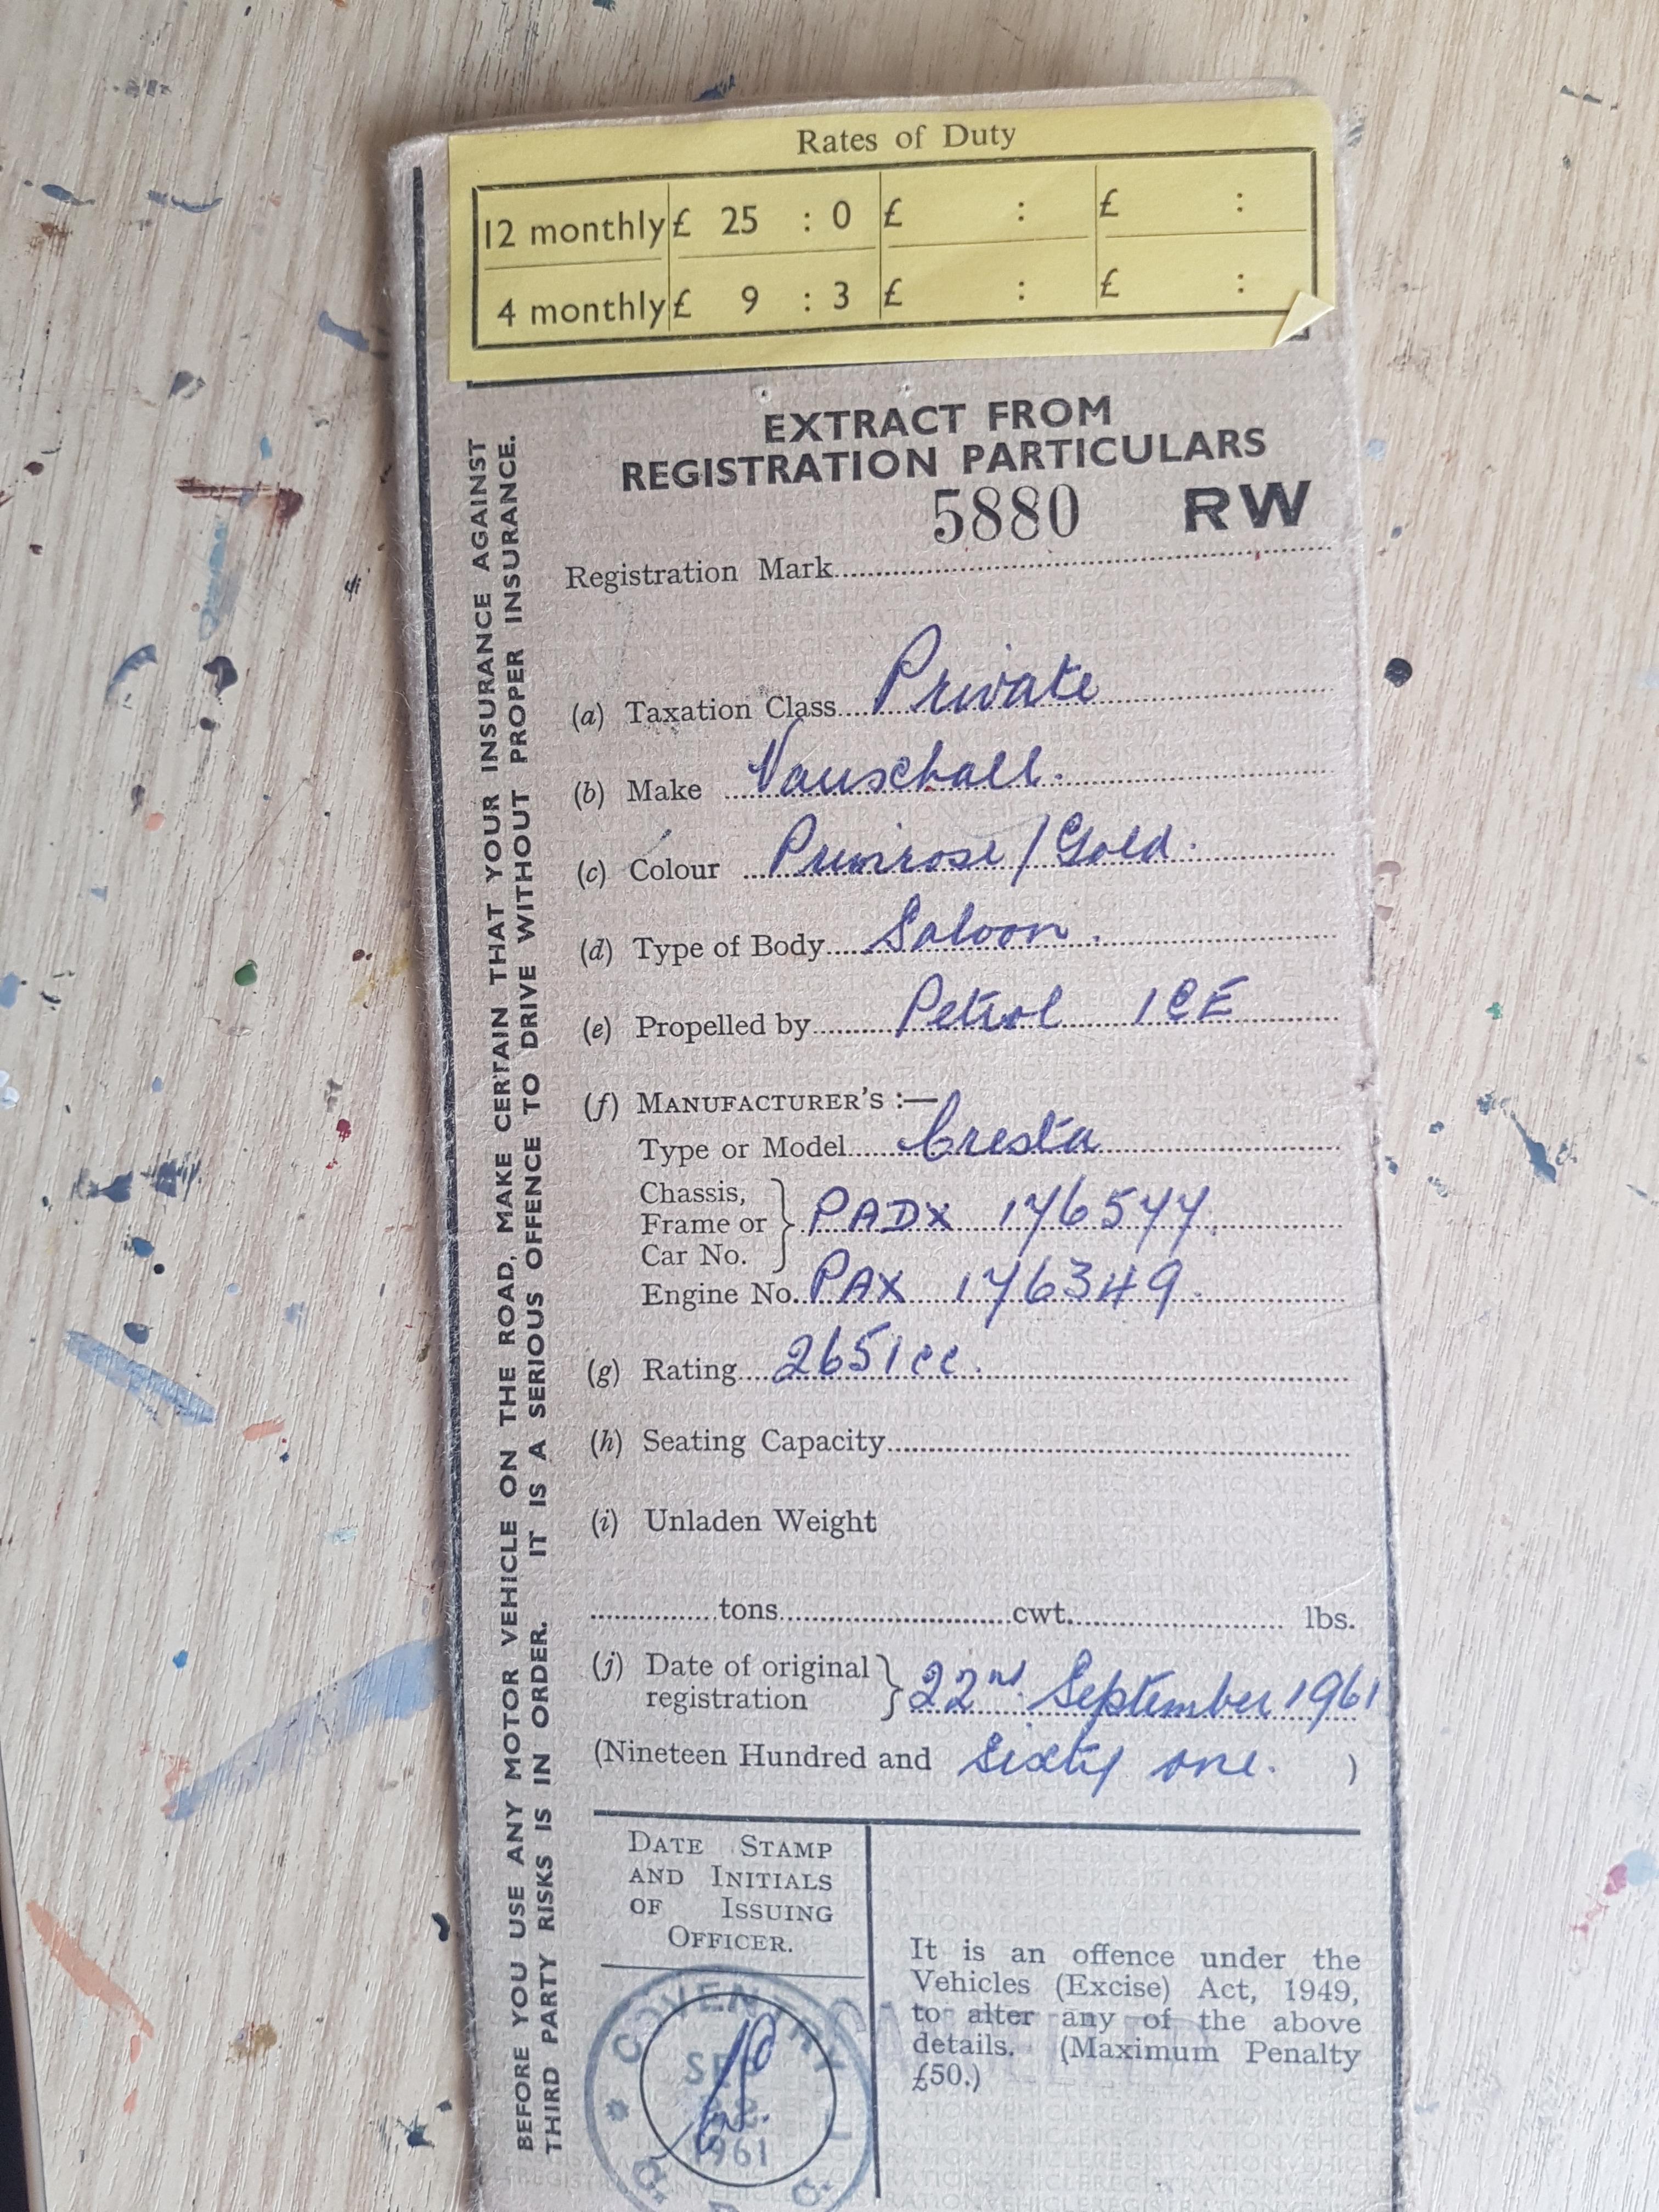 Rates of Duty
12 monthly £ 25 : 0 £ : £ :
4 monthly £ 9 : 3 £ : £ :
EXTRACT FROM
REGISTRATION PARTICULARS
5880 RW
Registration Mark
(a) Taxation Class Private
(b) Make Vauxhall.
(c) Colour Primrose / Gold.
(d) Type of Body Saloon.
(e) Propelled by Petrol ICE
(f) MANUFACTURER'S :—
Type or Model Cresta
Chassis,
Frame or } PADX 176577.
Car No.
Engine No. PAX 176349.
(g) Rating 2651cc.
(h) Seating Capacity
(i) Unladen Weight
tons cwt. lbs.
(j) Date of original
registration } 22nd September 1961
(Nineteen Hundred and sixty one. )
DATE STAMP
AND INITIALS
OF ISSUING
OFFICER.
COVENTRY
SEP
22
1961
It is an offence under the
Vehicles (Excise) Act, 1949,
to alter any of the above
details. (Maximum Penalty
£50.)
BEFORE YOU USE ANY MOTOR VEHICLE ON THE ROAD, MAKE CERTAIN THAT YOUR INSURANCE AGAINST
THIRD PARTY RISKS IS IN ORDER. IT IS A SERIOUS OFFENCE TO DRIVE WITHOUT PROPER INSURANCE.